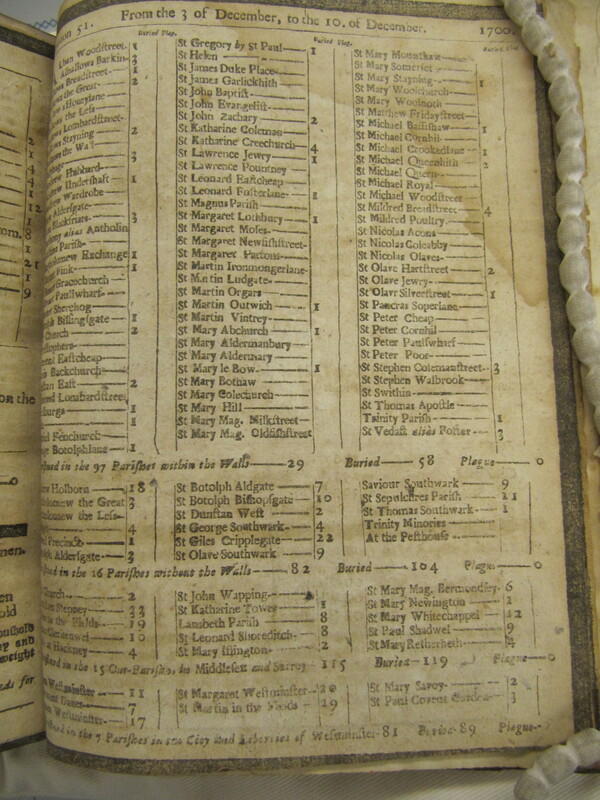 From the 3 of December, to the 10. of December. 1700.
Buried Plag.
Woodstreet
Barkin
Breadstreet 1
the Great 2
Honylane
the Less
Lombardstreet
Stayning 2
the Wall
Hubbard
Undershaft 1
Wardrobe
Aldersgate
Blackfriars 3
alias Antholin
Parish
Exchange 1
Fink 1
Gracechurch
Paulswharf
Sherehog
Billingsgate 1
Church 2
Eastcheap
Backchurch
East 2
Lombardstreet
1
1
Fenchurch
Botolphlane 1
St Gregory by St Paul 1
St Helen
St James Duke Place
St James Garlickhith
St John Baptist
St John Evangelist
St John Zachary 2
St Katharine Coleman
St Katharine Creechurch 4
St Lawrence Jewry 1
St Lawrence Pountney
St Leonard Eastcheap
St Leonard Fosterlane 1
St Magnus Parish
St Margaret Lothbury 1
St Margaret Moses
St Margaret Newfishstreet
St Margaret Pattons
St Martin Ironmongerlane
St Martin Ludgate
St Martin Orgars
St Martin Outwich 1
St Martin Vintrey
St Mary Abchurch 1
St Mary Aldermanbury
St Mary Aldermary
St Mary le Bow 1
St Mary Bothaw
St Mary Colechurch
St Mary Hill
St Mary Mag. Milkstreet
St Mary Mag. Oldfishstreet
St Mary Mounthaw
St Mary Somerset
St Mary Stayning 1
St Mary Woolchurch
St Mary Woolnoth
St Matthew Fridaystreet
St Michael Bassishaw 1
St Michael Cornhil
St Michael Crookedlane 1
St Michael Queenhith 2
St Michael Quern
St Michael Royal
St Michael Woodstreet
St Mildred Breadstreet 4
St Mildred Poultry
St Nicolas Acons
St Nicolas Coleabby
St Nicolas Olaves
St Olave Hartstreet 2
St Olave Jewry
St Olave Silverstreet 1
St Pancras Soperlane
St Peter Cheap
St Peter Cornhil
St Peter Paulswharf
St Peter Poor
St Stephen Colemanstreet 3
St Stephen Walbrook
St Swithin
St Thomas Apostle
Trinity Parish 1
St Vedast alias Foster 3
in the 97 Parishes within the Walls 29 Buried 58 Plague 0
Holborn 18
the Great 3
the Less
4
Precinct 1
Aldersgate 3
St Botolph Aldgate 7
St Botolph Bishopsgate 10
St Dunstan West 2
St George Southwark 4
St Giles Cripplegate 22
St Olave Southwark 9
Saviour Southwark 9
St Sepulchres Parish 11
St Thomas Southwark 1
Trinity Minories
At the Pesthouse
in the 16 Parishes without the Walls 82 Buried 104 Plague 0
2
Stepney 33
in the Fields 19
10
Hackney 4
St John Wapping
St Katharine Tower 1
Lambeth Parish 8
St Leonard Shoreditch 8
St Mary Islington 2
St Mary Mag. Bermondsey 6
St Mary Newington 2
St Mary Whitechappel 12
St Paul Shadwel 9
St Mary Retherheth 4
in the 15 Out-Parishes in Middlesex and Surrey 115 Buried 119 Plague 0
Westminster 11
Danes 7
Westminster 17
St Margaret Westminster 20
St Martin in the Fields 29
St Mary Savoy 2
St Paul Covent Garden 3
in the 7 Parishes in the City and Liberties of Westminster 81 Buried 89 Plague